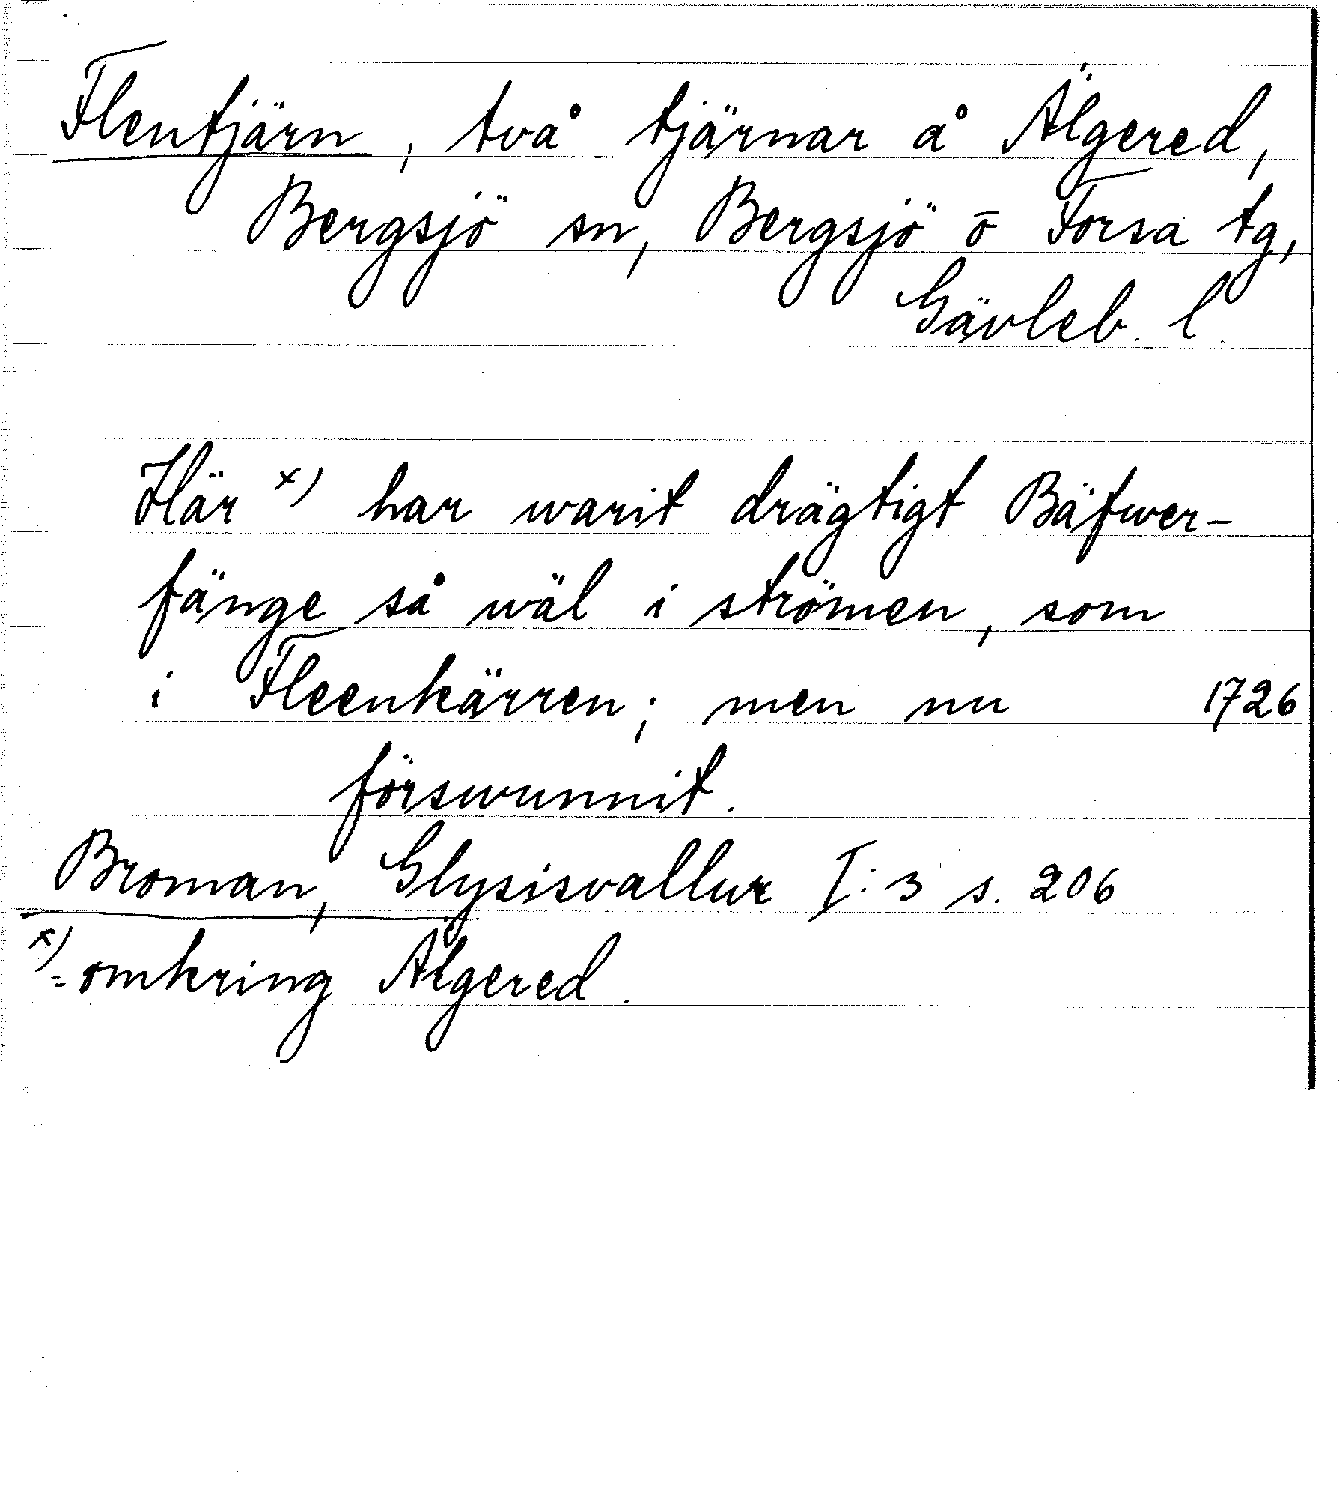 Flentjärn, två tjärnar å Älgered,
Bergsjö sn, Bergsjö o Forsa tg,
Gävleb. l.
Här x) har warit drägtigt Bäfwer-
fänge så wäl i strömen, som
i Fleenkärren; men nu 1726
förswunnit.
Broman, Glysisvallur I:3 s. 206
x) = omkring Älgered.